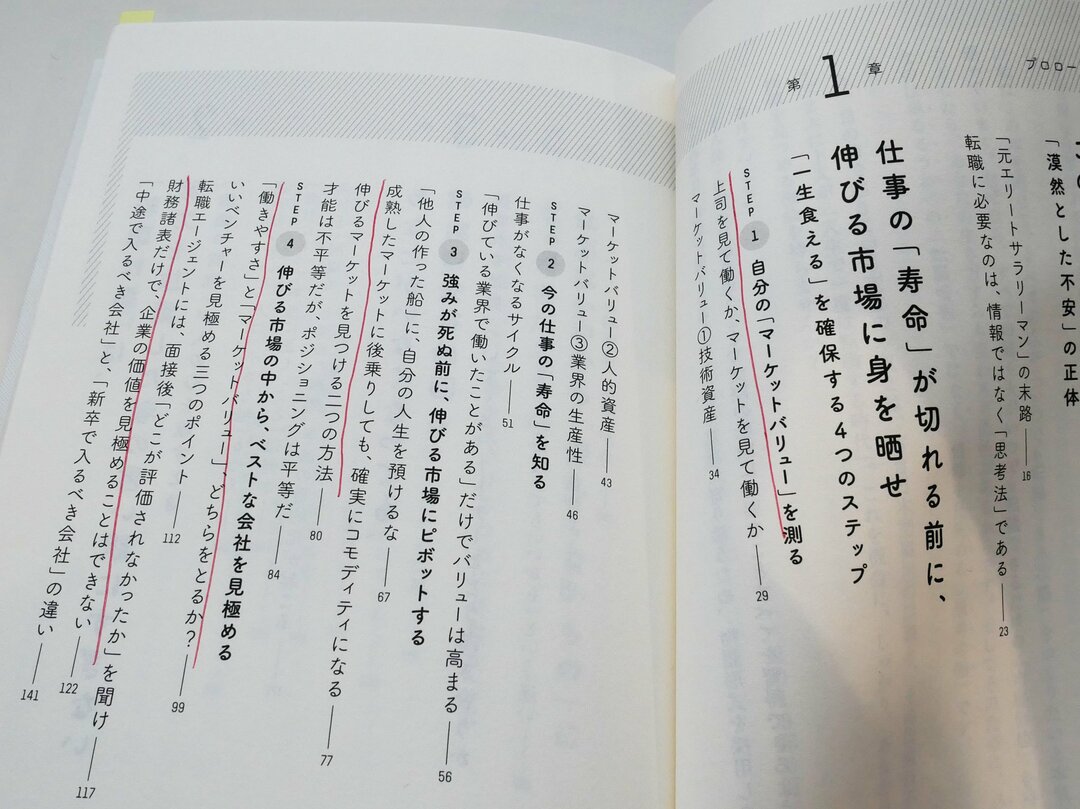 プロロー
「漠然とした不安」の正体
「元エリートサラリーマン」の末路 16
転職に必要なのは、情報ではなく「思考法」である 23
第1章
仕事の「寿命」が切れる前に、
伸びる市場に身を晒せ
「一生食える」を確保する4つのステップ
STEP 1 自分の「マーケットバリュー」を測る
上司を見て働くか、マーケットを見て働くか 29
マーケットバリュー①技術資産 34
マーケットバリュー②人的資産 43
マーケットバリュー③業界の生産性 46
STEP 2 今の仕事の「寿命」を知る
仕事がなくなるサイクル 51
「伸びている業界で働いたことがある」だけでバリューは高まる 56
STEP 3 強みが死ぬ前に、伸びる市場にピボットする
「他人の作った船」に、自分の人生を預けるな 67
成熟したマーケットに後乗りしても、確実にコモディティになる 77
伸びるマーケットを見つける二つの方法 80
才能は不平等だが、ポジショニングは平等だ 84
STEP 4 伸びる市場の中から、ベストな会社を見極める
「働きやすさ」と「マーケットバリュー」、どちらをとるか? 99
いいベンチャーを見極める三つのポイント 112
転職エージェントには、面接後「どこが評価されなかったか」を聞け 117
財務諸表だけで、企業の価値を見極めることはできない 122
「中途で入るべき会社」と、「新卒で入るべき会社」の違い 141